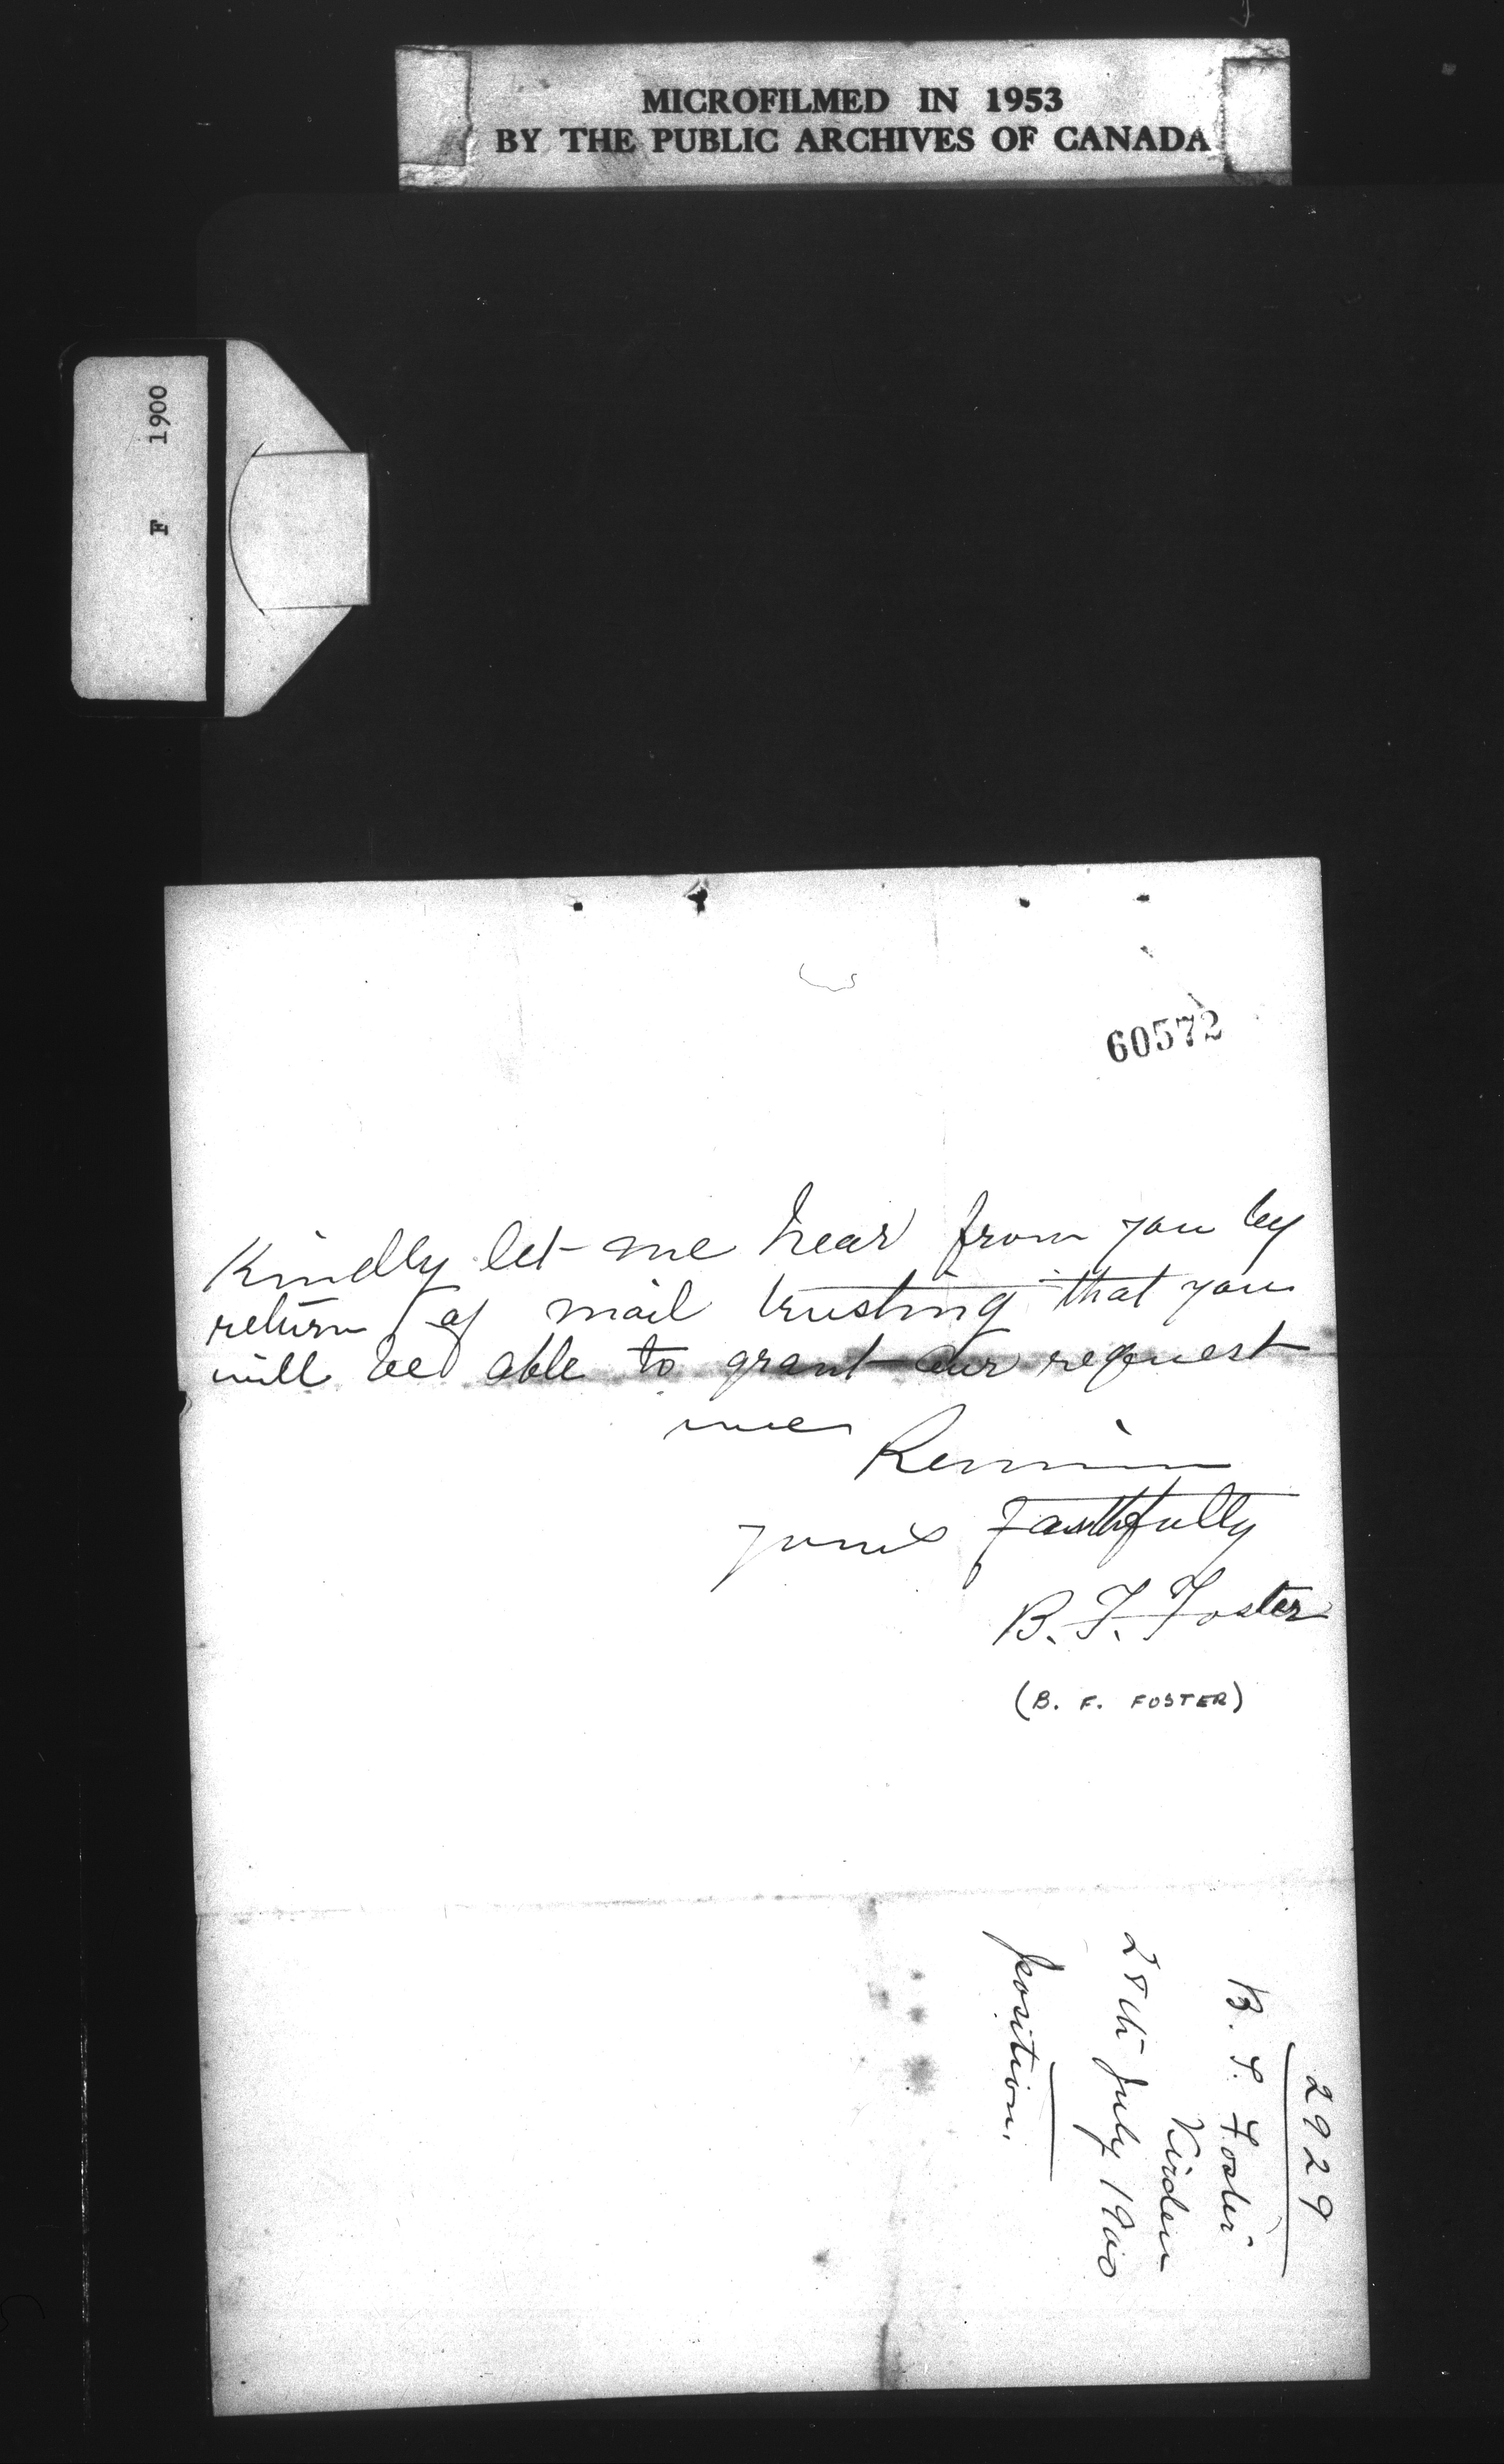 MICROFILMED IN 1953
BY THE PUBLIC ARCHIVES OF CANADA
F 1900
60572
Kindly let me hear from you by
return of mail trusting that you
will be able to grant our request
we
Remain
yours Faithfully
B. F. Foster
(B. F. FOSTER)
2929
B. F. Foster
Virden
28th July 1900
position.